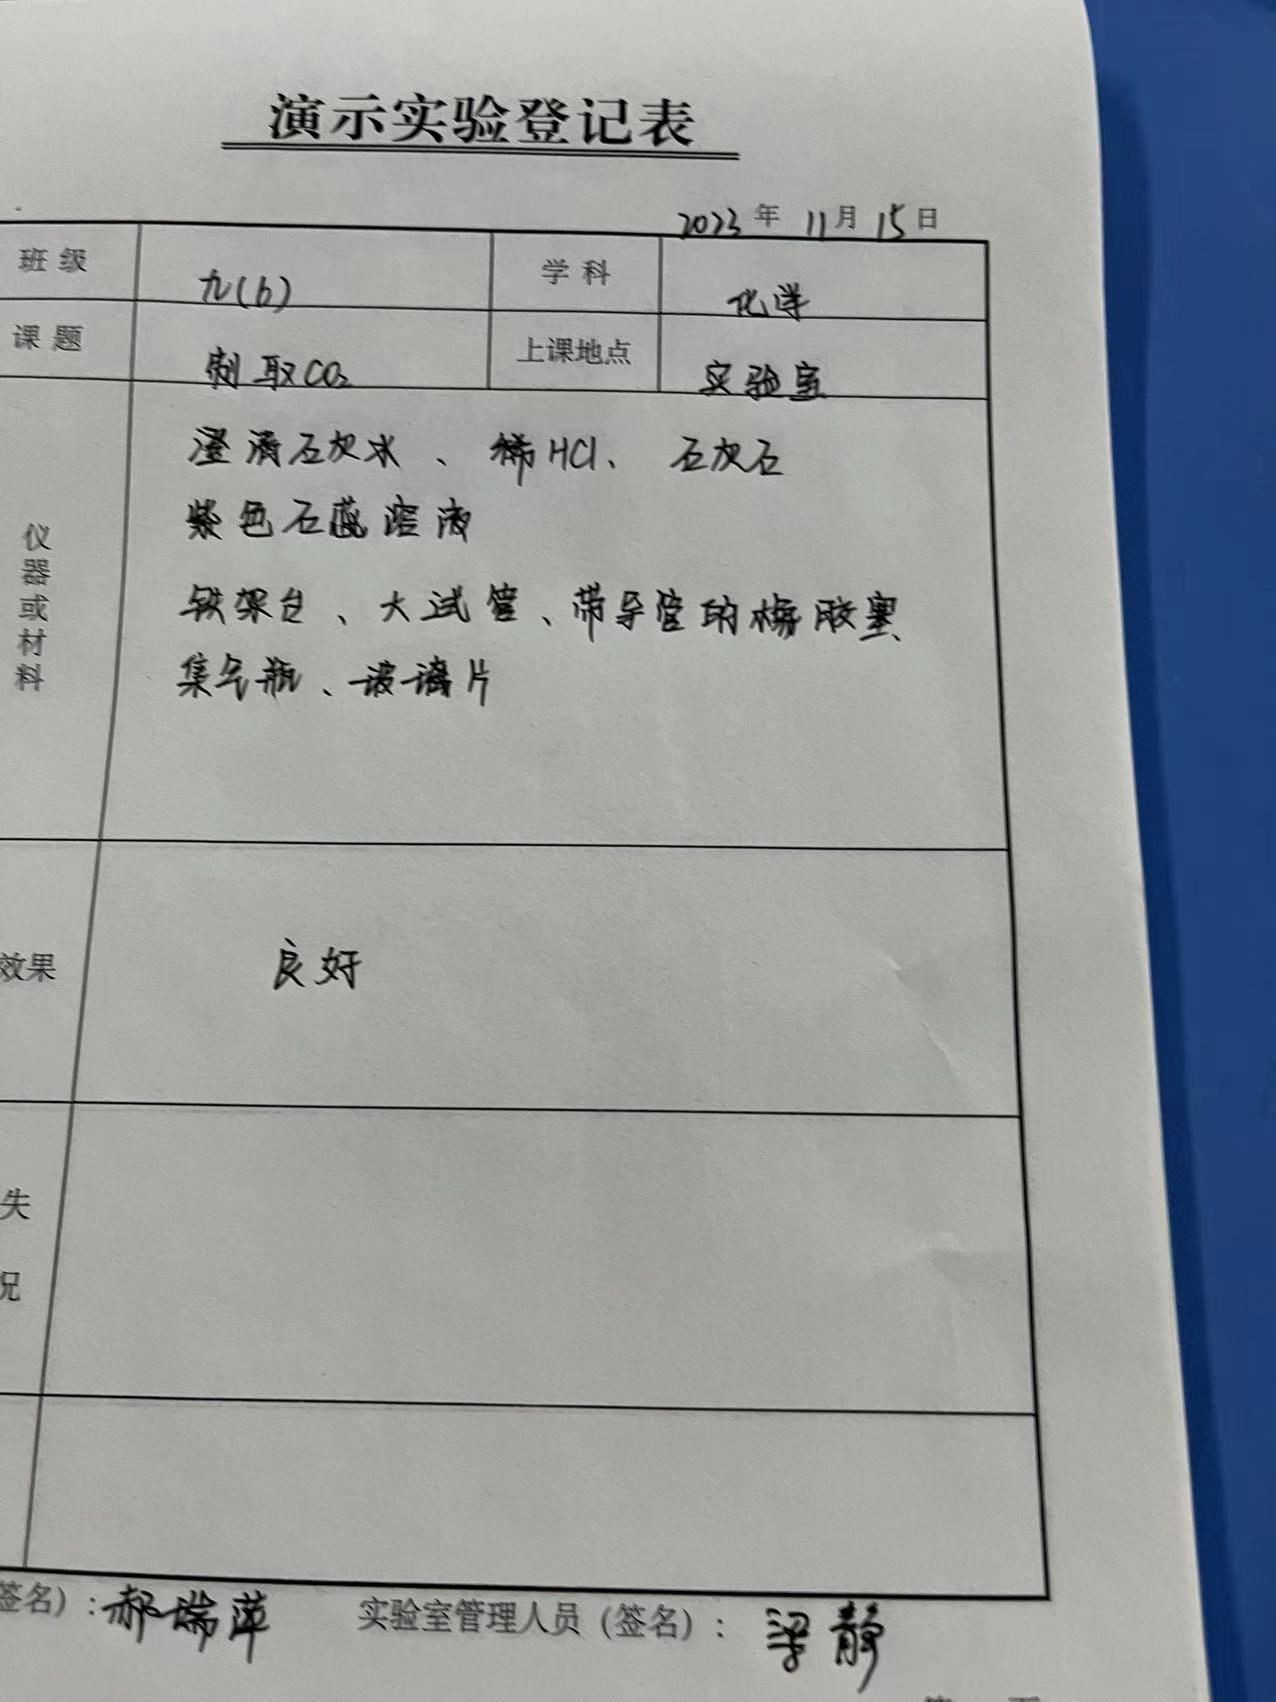 演示实验登记表
2023年 11月15日
班级 九(6) 学科 化学
课题 制取CO₂ 上课地点 实验室
仪器或材料
澄清石灰水、稀HCl、石灰石
紫色石蕊溶液
铁架台、大试管、带导管的橡胶塞
集气瓶、玻璃片
效果 良好
失
况
签名）：郝瑞萍 实验室管理人员（签名）：梁静